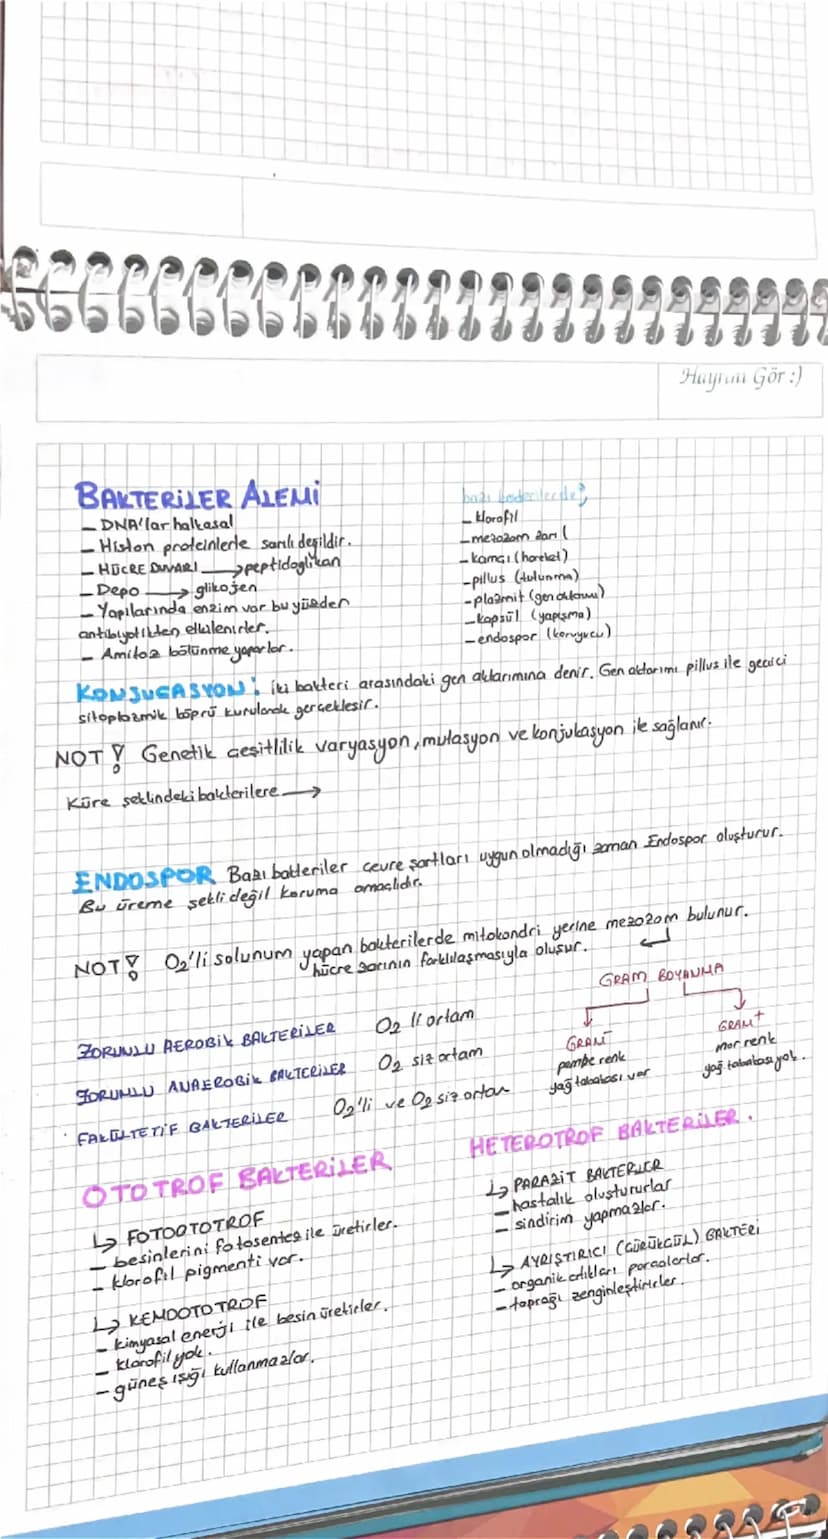 Hayrını Gör :)
BAKTERİLER ALEMİ
– DNA'lar halkasal
– Histon proteinlerle sarılı değildir.
– HÜCRE DUVARI → peptidoglikan
– Depo → glikojen
– Yapılarında enzim var bu yüzden
antibiyotikten etkilenirler.
– Amitoz bölünme yaparlar.
bazı
– klorofil
– mezozom zarı (
– kamçı (hareket)
– pillus (tutunma)
– plazmit (gen aktarımı)
– kapsül (yapışma)
– endospor (koruyucu)
KONJUGASYON: iki bakteri arasındaki gen aktarımına denir. Gen aktarımı pillus ile geçici
sitoplazmik köprü kurularak gerçekleşir.
NOT! Genetik çeşitlilik varyasyon, mutasyon ve konjukasyon ile sağlanır.
Küre şeklindeki bakterilere →
ENDOSPOR Bazı bakteriler çevre şartları uygun olmadığı zaman Endospor oluşturur.
Bu üreme şekli değil koruma amaçlıdır.
NOT! O2'li solunum yapan bakterilerde mitokondri yerine mezozom bulunur.
hücre zarının farklılaşmasıyla oluşur.
ZORUNLU AEROBİK BAKTERİLER O2 li ortam
ZORUNLU ANAEROBİK BAKTERİLER O2 siz ortam
FAKÜLTETİF BAKTERİLER O2'li ve O2 siz ortam
GRAM BOYANMA
GRAM–
pembe renk
yağ tabakası var
GRAM+
mor renk
yağ tabakası yok.
OTOTROF BAKTERİLER
↳ FOTOOTOTROF
– besinlerini fotosentez ile üretirler.
– klorofil pigmenti var.
↳ KEMOOTOTROF
– kimyasal enerji ile besin üretirler.
– klorofil yok.
– güneş ışığı kullanmazlar.
HETEROTROF BAKTERİLER.
↳ PARAZİT BAKTERİLER
– hastalık oluştururlar
– sindirim yapmazlar.
↳ AYRIŞTIRICI (ÇÜRÜKÇÜL) BAKTERİ
– organik atıkları parçalarlar.
– toprağı zenginleştirirler.